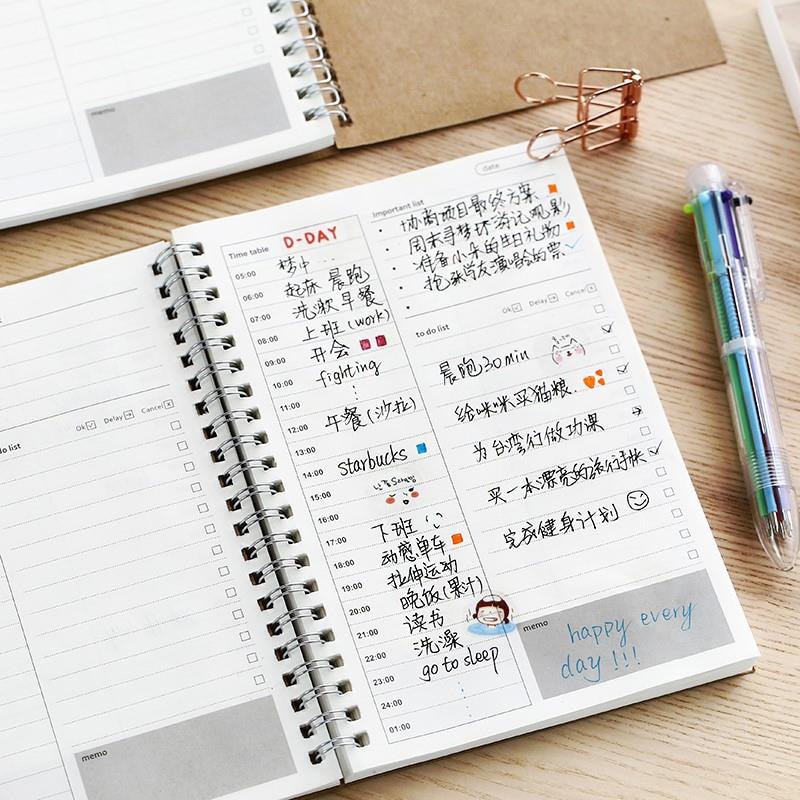 memo
Ok Delay Cancel
do list
memo
Time table D-DAY
05:00 梦中...
06:00 起床 晨跑
07:00 洗漱 早餐
08:00 上班 (work)
09:00 开会
10:00 fighting
11:00
12:00 午餐 (沙拉)
13:00
14:00 starbucks
15:00
16:00
17:00 下班
18:00 动感单车
19:00 拉伸运动
20:00 晚饭 (果汁)
21:00 读书
22:00 洗澡
23:00 go to sleep
24:00
01:00
date
Important list
协商项目最终方案
周末寻梦环游记观影
准备小朵的生日礼物
抢张学友演唱会的票
Ok Delay Cancel
to do list
晨跑30min
给咪咪买猫粮.
为台湾行做功课
买一本漂亮的旅行手帐
完成健身计划
memo
happy every
day !!!